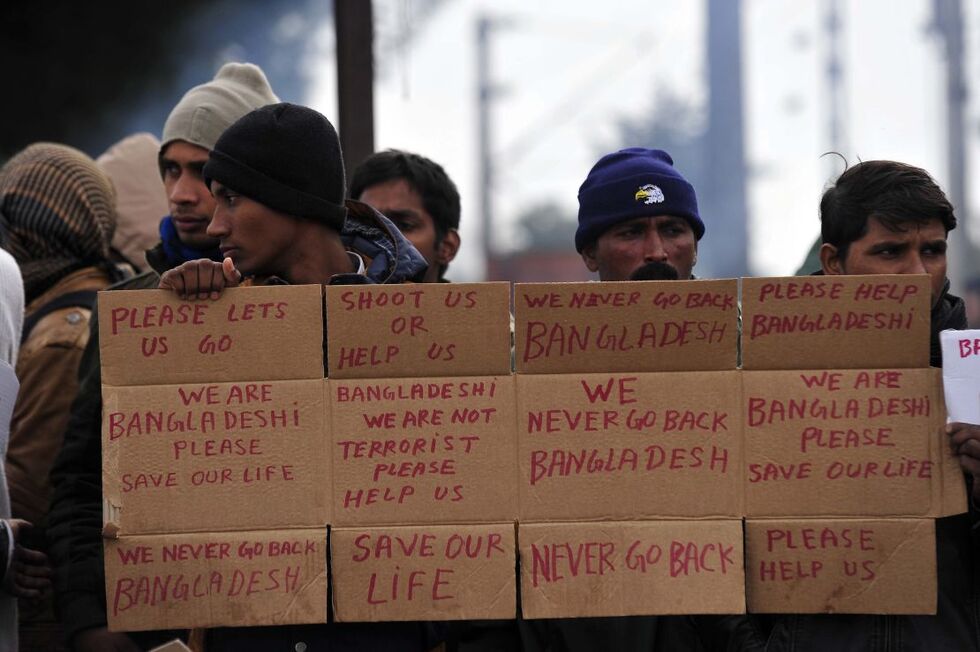 PLEASE LETS
US GO
WE ARE
BANGLADESHI
PLEASE
SAVE OUR LIFE
WE NEVER GO BACK
BANGLADESH
SHOOT US
OR
HELP US
BANGLADESHI
WE ARE NOT
TERRORIST
PLEASE
HELP US
SAVE OUR
LIFE
WE NEVER GO BACK
BANGLADESH
WE
NEVER GO BACK
BANGLADESH
NEVER GO BACK
PLEASE HELP
BANGLADESHI
WE ARE
BANGLADESHI
PLEASE
SAVE OUR LIFE
PLEASE
HELP US